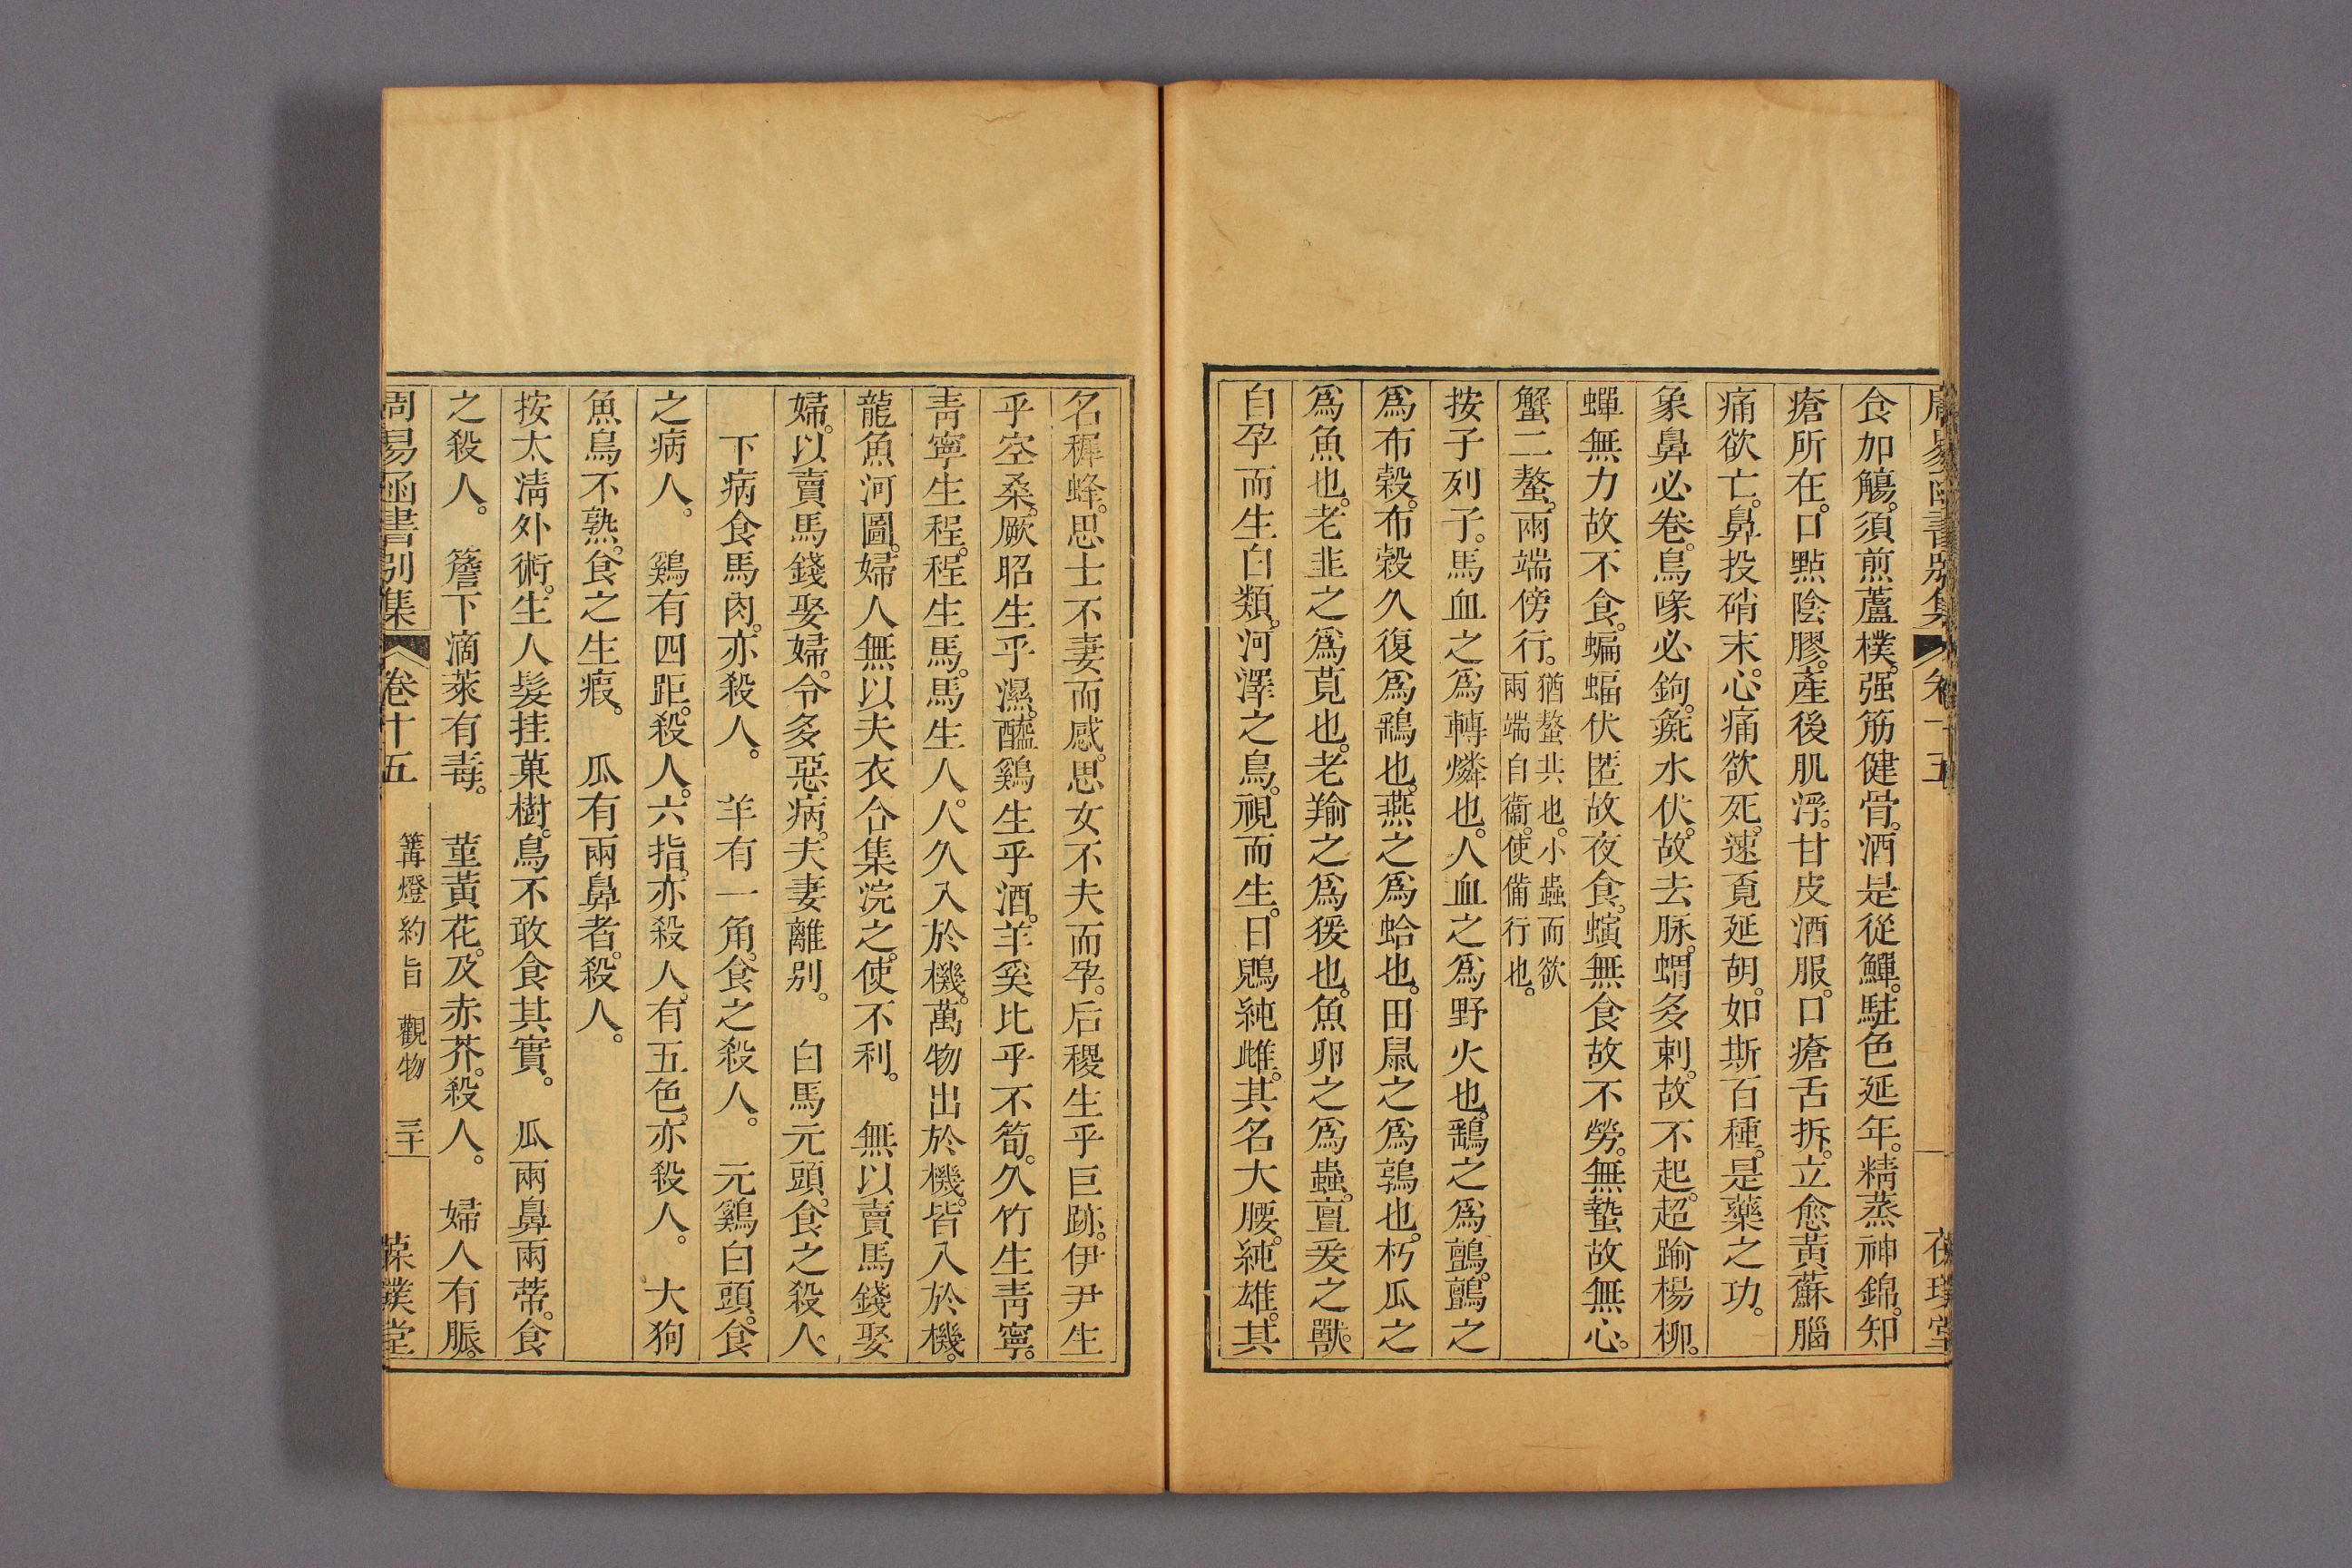 周易函書別集 卷十五 葆璞堂
食加觴。須煎蘆樸。强筋健骨。酒是從鱓。駐色延年。精蒸神錦。知
瘡所在。口點陰膠。產後肌浮。甘皮酒服。口瘡舌拆。立愈黃蘇。腦
痛欲亡。鼻投硝末。心痛欲死。速覔延胡。如斯百種。是藥之功。
象鼻必卷。鳥喙必鉤。㲋水伏。故去脉。蝟多刺。故不起。超踰楊柳。
蟬無力故不食。蝙蝠伏匿故夜食。螾無食故不勞。無蟄故無心。
蟹二螯。兩端傍行。猶螯共也。小蟲而欲兩端自衞。使備行也。
按子列子。馬血之爲轉燐也。人血之爲野火也。鷂之爲鸇。鸇之
爲布榖。布榖久復爲鷂也。燕之爲蛤也。田鼠之爲鶉也。朽瓜之
爲魚也。老韭之爲莧也。老羭之爲猨也。魚卵之爲蟲。亶爰之獸。
自孕而生白類。河澤之鳥。視而生。曰鶂純雌。其名大腰。純雄。其
名穉蜂。思士不妻而感。思女不夫而孕。后稷生乎巨跡。伊尹生
乎空桑。厥昭生乎濕。醯鷄生乎酒。羊奚比乎不筍。久竹生靑寧。
靑寧生程。程生馬。馬生人。人久入於機。萬物出於機。皆入於機。
龍魚河圖。婦人無以夫衣合集浣之。使不利。 無以賣馬錢娶
婦。以賣馬錢娶婦。令多惡病。夫妻離别。 白馬元頭。食之殺人。
下病食馬肉。亦殺人。 羊有一角。食之殺人。 元鷄白頭。食
之病人。 鷄有四距。殺人。六指。亦殺人。有五色。亦殺人。 大狗
魚鳥不熟。食之生瘕。 瓜有兩鼻者。殺人。
按太淸外術。生人髮挂菓樹。鳥不敢食其實。 瓜兩鼻兩蒂。食
之殺人。 簷下滴菜有毒。 菫黃花。及赤芥。殺人。 婦人有脤。
周易函書別集 卷十五 篝燈約旨 觀物 三十 葆璞堂